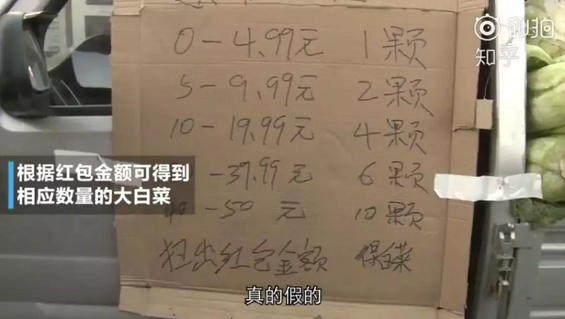 秒拍
知乎
0-4.99元 1颗
5-9.99元 2颗
10-19.99元 4颗
-39.99元 6颗
-50元 10颗
红包金额 白菜
根据红包金额可得到
相应数量的大白菜
真的假的